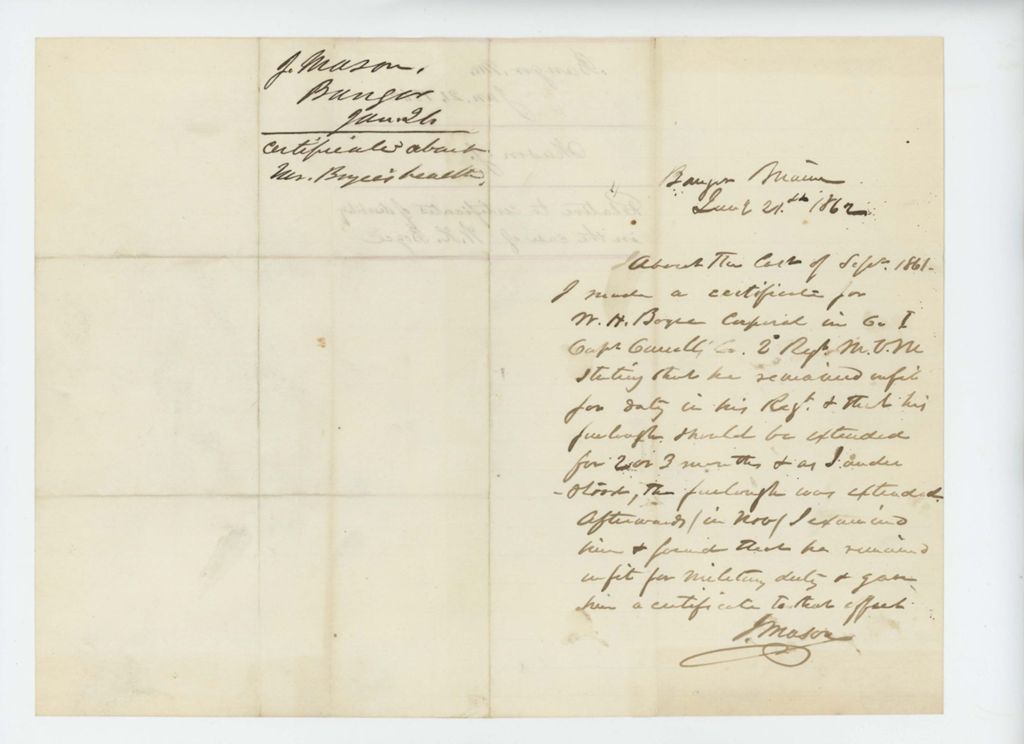 J. Mason.
Bangor
Jan. 26
certificate about
Mr. Boyce's health.
Bangor Maine
21.st 1862
About the last of Sept. 1861-
I made a certificate for
W. H. Boyce Corporal in Co. I
Capt Co. 2d Regt. M. V. M
stating that he remained unfit
for duty in his Regt. & that his
furlough should be extended
for 2 or 3 months & as I under
-stood, the furlough was extended.
Afterwards/in Nov/ I examined
him & found that he remained
unfit for military duty & gave
him a certificate to that effect.
J. Mason
Bangor, Me.
Jan. 26
Mason, J.
Relative to certificates of disability
in the case of W. H. Boyce